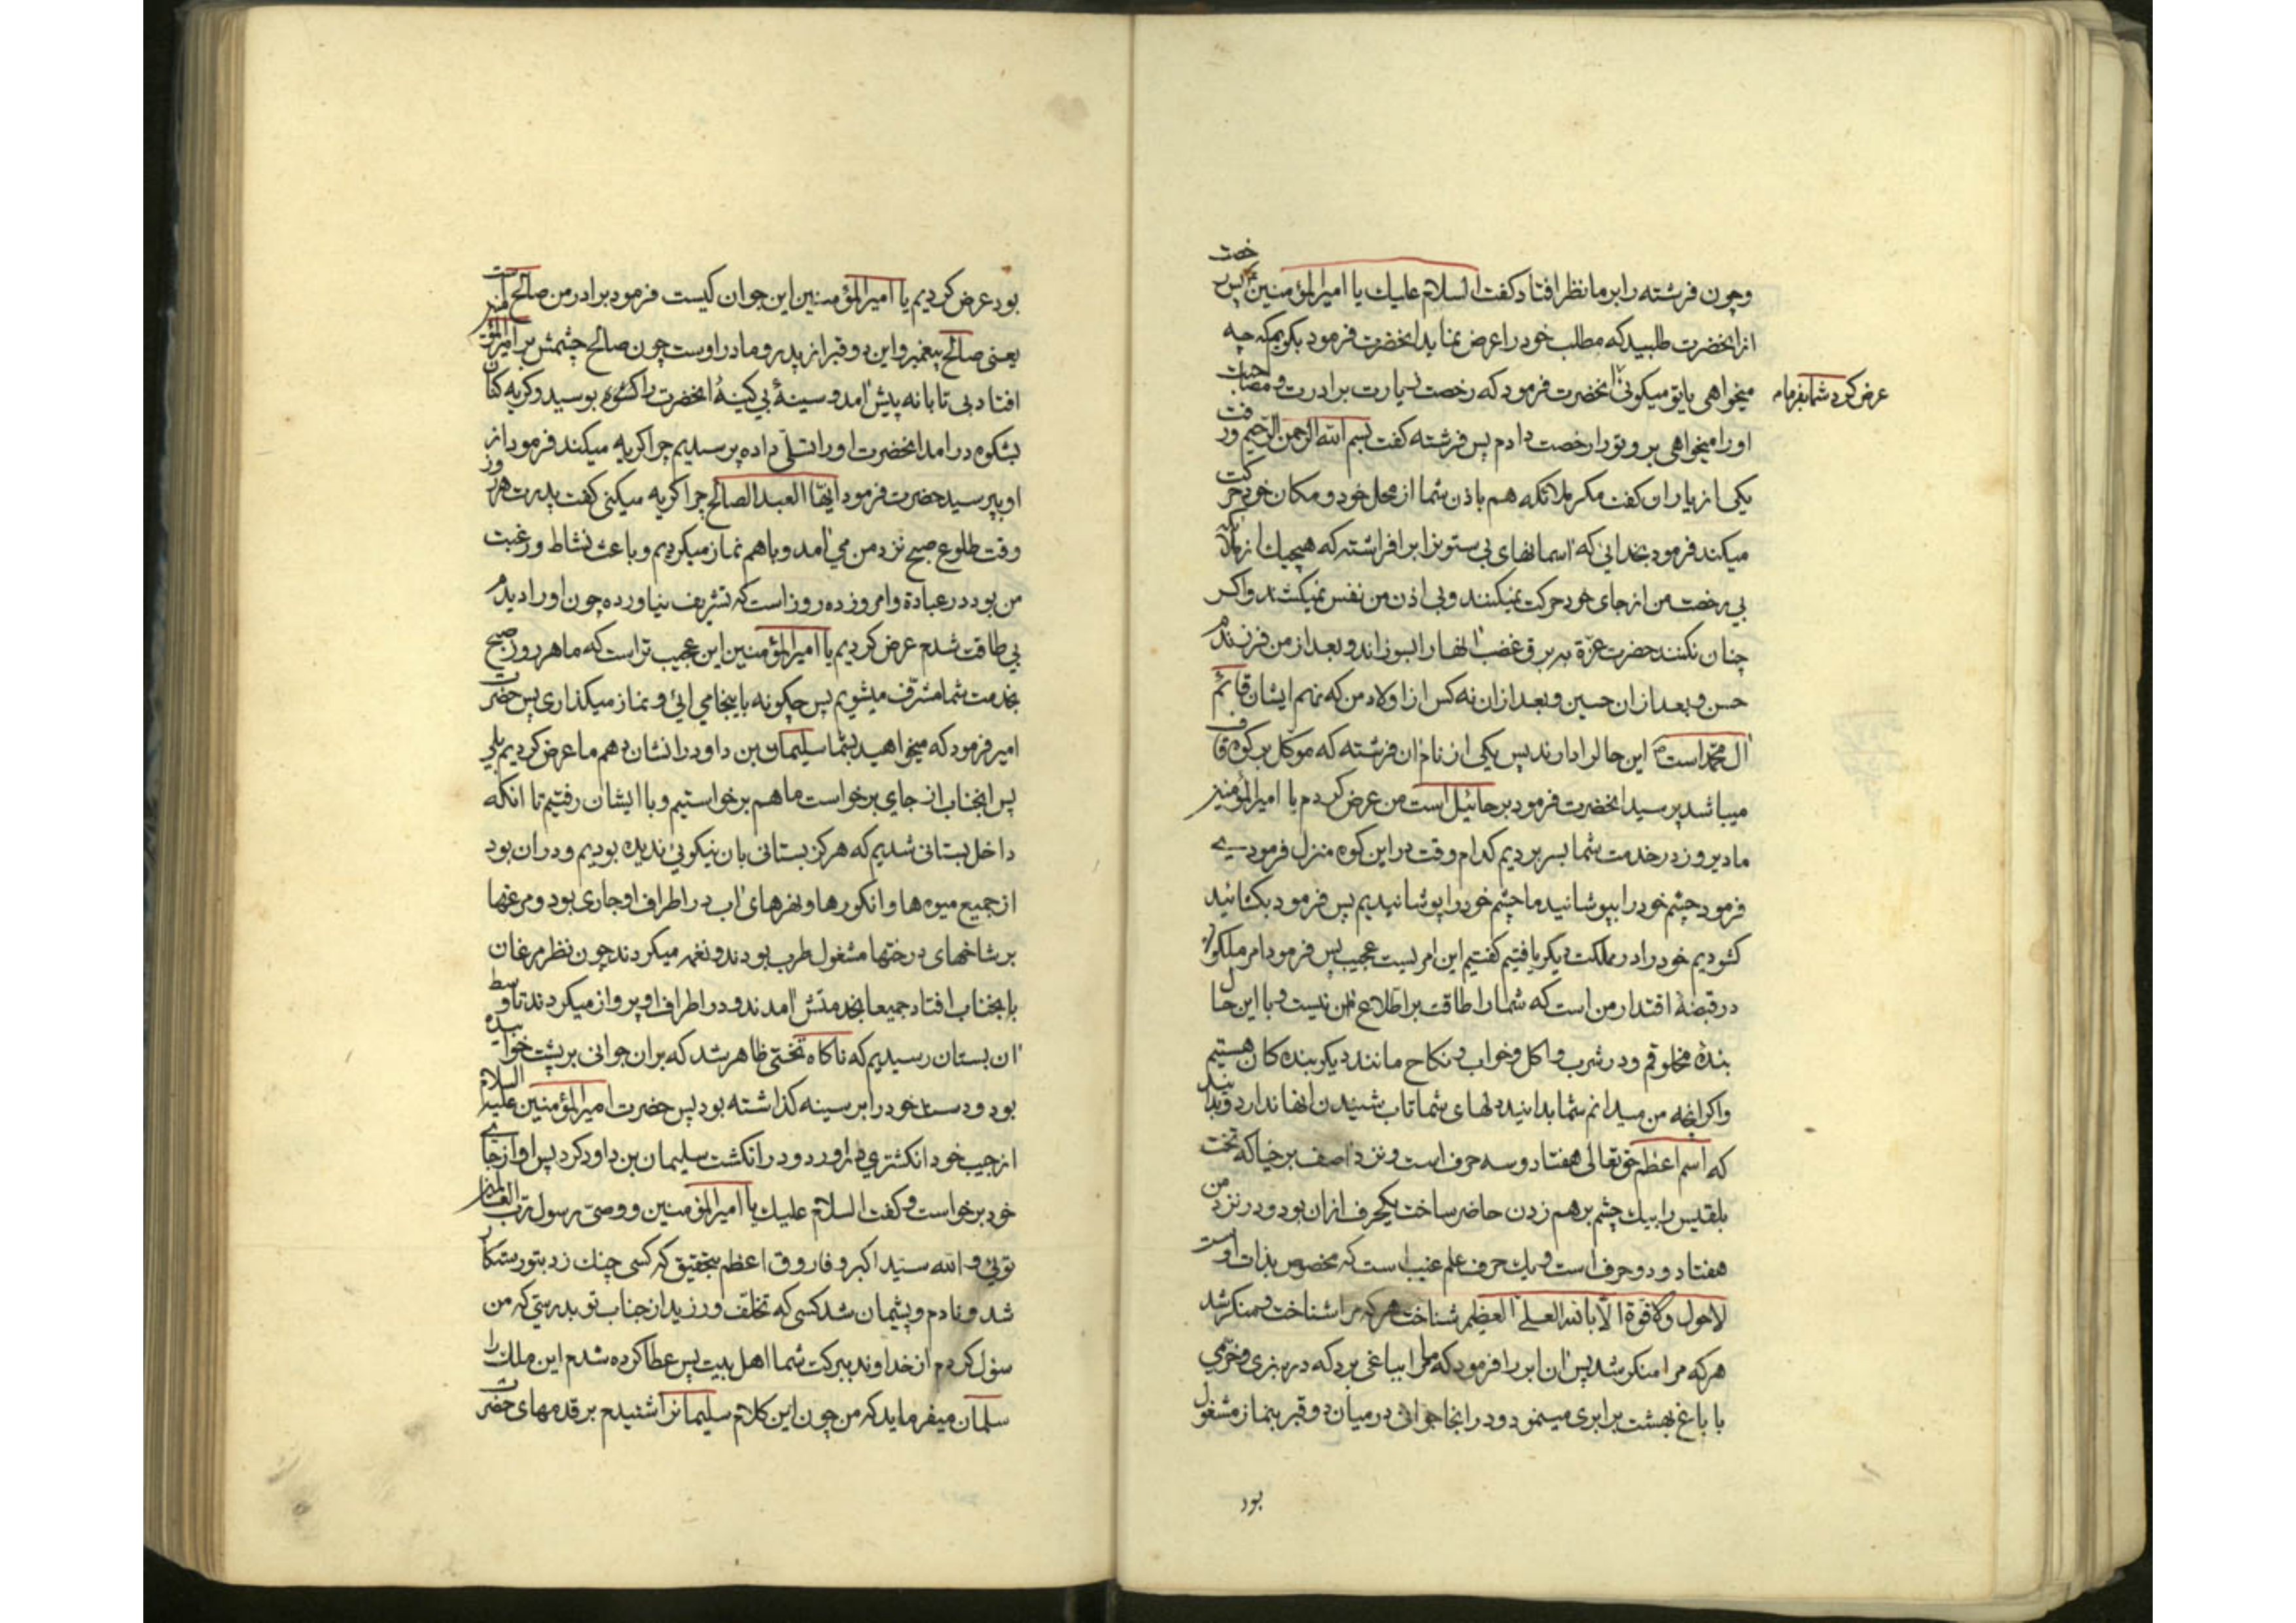 وچون فرشته را بر ما نظر افتاد کفت السلام علیك یا امیرالمؤمنین پس رخصت
از انحضرت طلبید که مطلب خود را عرض نماید انحضرت فرمود بکویم که چه
میخواهی یا تو میکوئی انحضرت فرمود که رخصت زیارت برادرت و مصاحبت
عرض کرد شما بفرماید
او را میخواهی برو تو را رخصت دادم پس فرشته کفت بسم الله الرحمن الرحیم و رفت
یکی از یاران کفت مکر ملائکه هم باذن شما از محل خود و مکان خود حرکت
میکند فرمود بخدائی که اسمانهای بی ستونرا بر افراشته که هیچیك از ملائکه
بی رخصت من از جای خود حرکت نمیکنند و بی اذن من نفس نمیکشند و اکر
چنان نکنند حضرت عزة به برق غضب انها را بسوزاند و بعد از من فرزندم
حسن و بعد از ان حسین و بعد از ان نه کس از اولاد من که نهم ایشان قائم
ال محمد است این حال را دارند پس یکی از نام ان فرشته که موکل بر کوه قاف
میباشد پرسید انحضرت فرمود برحائیل است من عرض کردم یا امیرالمؤمنین
ما دیروز در خدمت شما بسر بردیم کدام وقت در این کوه منزل فرمودی
فرمود چشم خود را بپوشانید ما چشم خود را پوشانیدیم پس فرمود بکشائید
کشودیم خود را در مملکت دیکر یافتیم کفتیم این امریست عجیب پس فرمود امر ملکوت
در قبضهٔ اقتدار من است که شما را طاقت بر اطلاع ان نیست و با این حال
بندهٔ مخلوقم و در شرب و اکل و خواب و نکاح مانند دیکر بندکان هستیم
و اکر انچه من میدانم شما بدانید دلهای شما تاب شنیدن انها ندارد و بدانید
که اسم اعظم حق تعالی هفتاد و سه حرف است و نزد اصف برخیا که تخت
بلقیس را بیك چشم برهم زدن حاضر ساخت یکحرف از ان بود و در نزد من
هفتاد و دو حرف است و یك حرف علم غیب است که مخصوص بذات اوست
لا حول ولا قوة الا بالله العلی العظیم شناخت هر که مرا شناخت و منکر شد
هر که مرا منکر شد پس ان ابر را فرمود که ما را بباغی برد که در سبزی و خرّمی
با باغ بهشت برابری مینمود و در انجا جوانی در میان دو قبر بنماز مشغول
بود
بود عرض کردیم یا امیرالمؤمنین این جوان کیست فرمود برادر من صالح است
یعنی صالح پیغمبر و این دو قبر از پدر و مادر اوست چون صالح چشمش بر امیرالمؤمنین
افتاد بی تابانه پیش امد و سینهٔ بی کینهٔ انحضرت را کشوده بوسید و کریه کنان
بشکوه درامد انحضرت او را تسلّی داده پرسیدیم چرا کریه میکند فرمود از
او بپرسید حضرت فرمود ایها العبد الصالح چرا کریه میکنی کفت پدرت هر روز
وقت طلوع صبح نزد من می امد و باهم نماز میکردیم و باعث نشاط و رغبت
من بود در عبادة و امروز ده روز است که تشریف نیاورده چون او را دیدم
بی طاقت شدم عرض کردیم یا امیرالمؤمنین این عجیب تر است که ما هر روز صبح
بخدمت شما مشرّف میشویم پس چکونه باینجا می ائی و نماز میکذاری پس حضرت
امیر فرمود که میخواهید بشما سلیمان بن داود را نشان دهم ما عرض کردیم بلی
پس انجناب از جای برخواست ما هم برخواستیم و با ایشان رفتیم تا انکه
داخل بستانی شدیم که هرکز بستانی بان نیکوئی ندیده بودیم و در ان بود
از جمیع میوه ها و انکورها و نهرهای اب در اطراف او جاری بود و مرغها
بر شاخهای درختها مشغول طرب بودند و نغمه میکردند چون نظر مرغان
بانجناب افتاد جمیعا بخدمتش امدند و در اطراف او پرواز میکردند تا وسط
ان بستان رسیدیم که ناکاه تختی ظاهر شد که بر ان جوانی بر پشت خوابیده
بود و دست خود را بر سینه کذاشته بود پس حضرت امیرالمؤمنین علیه السلام
از جیب خود انکشتری دراورد و در انکشت سلیمان بن داود کرد پس او از جای
خود برخواست و کفت السلام علیك یا امیرالمؤمنین و وصیّ رسول رب العالمین
توئی و الله سیّد اکبر و فاروق اعظم بتحقیق که کسی چنك زد بتو رستکار
شد و نادم و پشیمان شد کسی که تخلّف ورزید از جناب تو بدرستی که من
سؤل کردم از خداوند ببرکت شما اهل بیت پس عطا کرده شدم این ملك را
سلمان میفرماید که من چون این کلام سلیمانرا شنیدم بر قدمهای حضرت